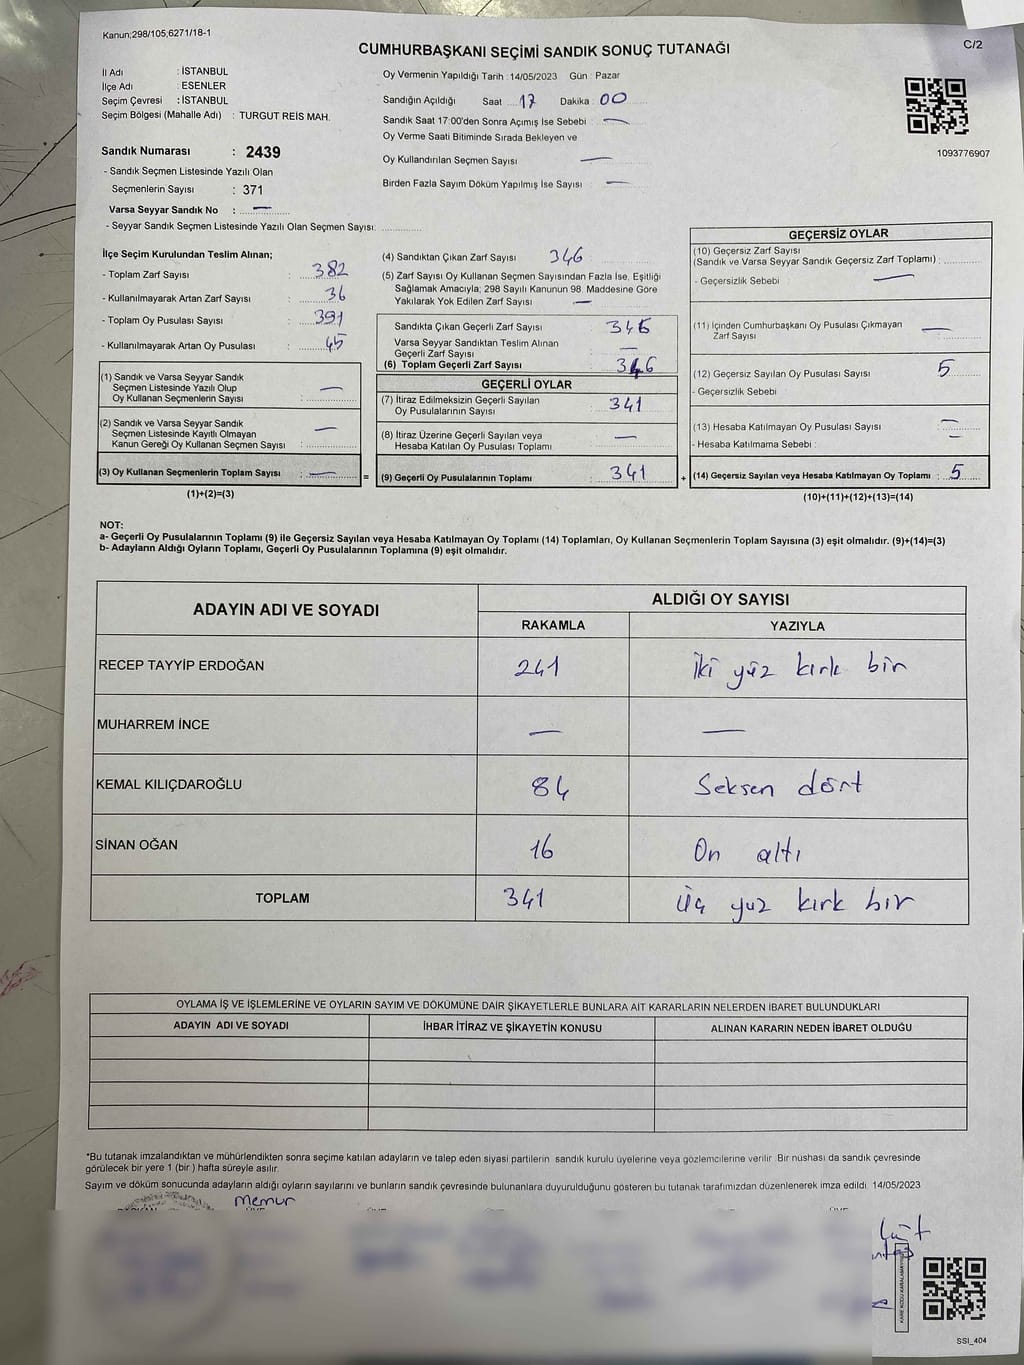 Kanun;298/105;6271/18-1
C/2
CUMHURBAŞKANI SEÇİMİ SANDIK SONUÇ TUTANAĞI
İl Adı : İSTANBUL
İlçe Adı : ESENLER
Seçim Çevresi : İSTANBUL
Seçim Bölgesi (Mahalle Adı) : TURGUT REİS MAH.
Sandık Numarası : 2439
- Sandık Seçmen Listesinde Yazılı Olan
Seçmenlerin Sayısı : 371
Varsa Seyyar Sandık No : —
- Seyyar Sandık Seçmen Listesinde Yazılı Olan Seçmen Sayısı:
Oy Vermenin Yapıldığı Tarih : 14/05/2023 Gün : Pazar
Sandığın Açıldığı Saat 17 Dakika 00
Sandık Saat 17:00'den Sonra Açımış İse Sebebi : —
Oy Verme Saati Bitiminde Sırada Bekleyen ve
Oy Kullandırılan Seçmen Sayısı —
Birden Fazla Sayım Döküm Yapılmış İse Sayısı : —
1093776907
İlçe Seçim Kurulundan Teslim Alınan;
- Toplam Zarf Sayısı : 382
- Kullanılmayarak Artan Zarf Sayısı : 36
- Toplam Oy Pusulası Sayısı : 391
- Kullanılmayarak Artan Oy Pusulası : 45
(1) Sandık ve Varsa Seyyar Sandık
Seçmen Listesinde Yazılı Olup
Oy Kullanan Seçmenlerin Sayısı : —
(2) Sandık ve Varsa Seyyar Sandık
Seçmen Listesinde Kayıtlı Olmayan
Kanun Gereği Oy Kullanan Seçmen Sayısı : —
(3) Oy Kullanan Seçmenlerin Toplam Sayısı : —
(1)+(2)=(3)
=
(4) Sandıktan Çıkan Zarf Sayısı : 346
(5) Zarf Sayısı Oy Kullanan Seçmen Sayısından Fazla İse, Eşitliği
Sağlamak Amacıyla; 298 Sayılı Kanunun 98. Maddesine Göre
Yakılarak Yok Edilen Zarf Sayısı : —
Sandıkta Çıkan Geçerli Zarf Sayısı : 346
Varsa Seyyar Sandıktan Teslim Alınan
Geçerli Zarf Sayısı : —
(6) Toplam Geçerli Zarf Sayısı : 346
GEÇERLİ OYLAR
(7) İtiraz Edilmeksizin Geçerli Sayılan
Oy Pusulalarının Sayısı : 341
(8) İtiraz Üzerine Geçerli Sayılan veya
Hesaba Katılan Oy Pusulası Toplamı : —
(9) Geçerli Oy Pusulalarının Toplamı : 341
+
GEÇERSİZ OYLAR
(10) Geçersiz Zarf Sayısı
(Sandık ve Varsa Seyyar Sandık Geçersiz Zarf Toplamı) :
- Geçersizlik Sebebi : —
(11) İçinden Cumhurbaşkanı Oy Pusulası Çıkmayan
Zarf Sayısı : —
(12) Geçersiz Sayılan Oy Pusulası Sayısı : 5
- Geçersizlik Sebebi :
(13) Hesaba Katılmayan Oy Pusulası Sayısı : —
- Hesaba Katılmama Sebebi : —
(14) Geçersiz Sayılan veya Hesaba Katılmayan Oy Toplamı : 5
(10)+(11)+(12)+(13)=(14)
NOT:
a- Geçerli Oy Pusulalarının Toplamı (9) ile Geçersiz Sayılan veya Hesaba Katılmayan Oy Toplamı (14) Toplamları, Oy Kullanan Seçmenlerin Toplam Sayısına (3) eşit olmalıdır. (9)+(14)=(3)
b- Adayların Aldığı Oyların Toplamı, Geçerli Oy Pusulalarının Toplamına (9) eşit olmalıdır.
ADAYIN ADI VE SOYADI
ALDIĞI OY SAYISI
RAKAMLA YAZIYLA
RECEP TAYYİP ERDOĞAN 241 İki yüz kırk bir
MUHARREM İNCE — —
KEMAL KILIÇDAROĞLU 84 Seksen dört
SİNAN OĞAN 16 On altı
TOPLAM 341 Üç yüz kırk bir
OYLAMA İŞ VE İŞLEMLERİNE VE OYLARIN SAYIM VE DÖKÜMÜNE DAİR ŞİKAYETLERLE BUNLARA AİT KARARLARIN NELERDEN İBARET BULUNDUKLARI
ADAYIN ADI VE SOYADI İHBAR İTİRAZ VE ŞİKAYETİN KONUSU ALINAN KARARIN NEDEN İBARET OLDUĞU
*Bu tutanak imzalandıktan ve mühürlendikten sonra seçime katılan adayların ve talep eden siyasi partilerin sandık kurulu üyelerine veya gözlemcilerine verilir. Bir nüshası da sandık çevresinde
görülecek bir yere 1 (bir) hafta süreyle asılır.
Sayım ve döküm sonucunda adayların aldığı oyların sayılarını ve bunların sandık çevresinde bulunanlara duyurulduğunu gösteren bu tutanak tarafımızdan düzenlenerek imza edildi. 14/05/2023
Memur
SSI_404